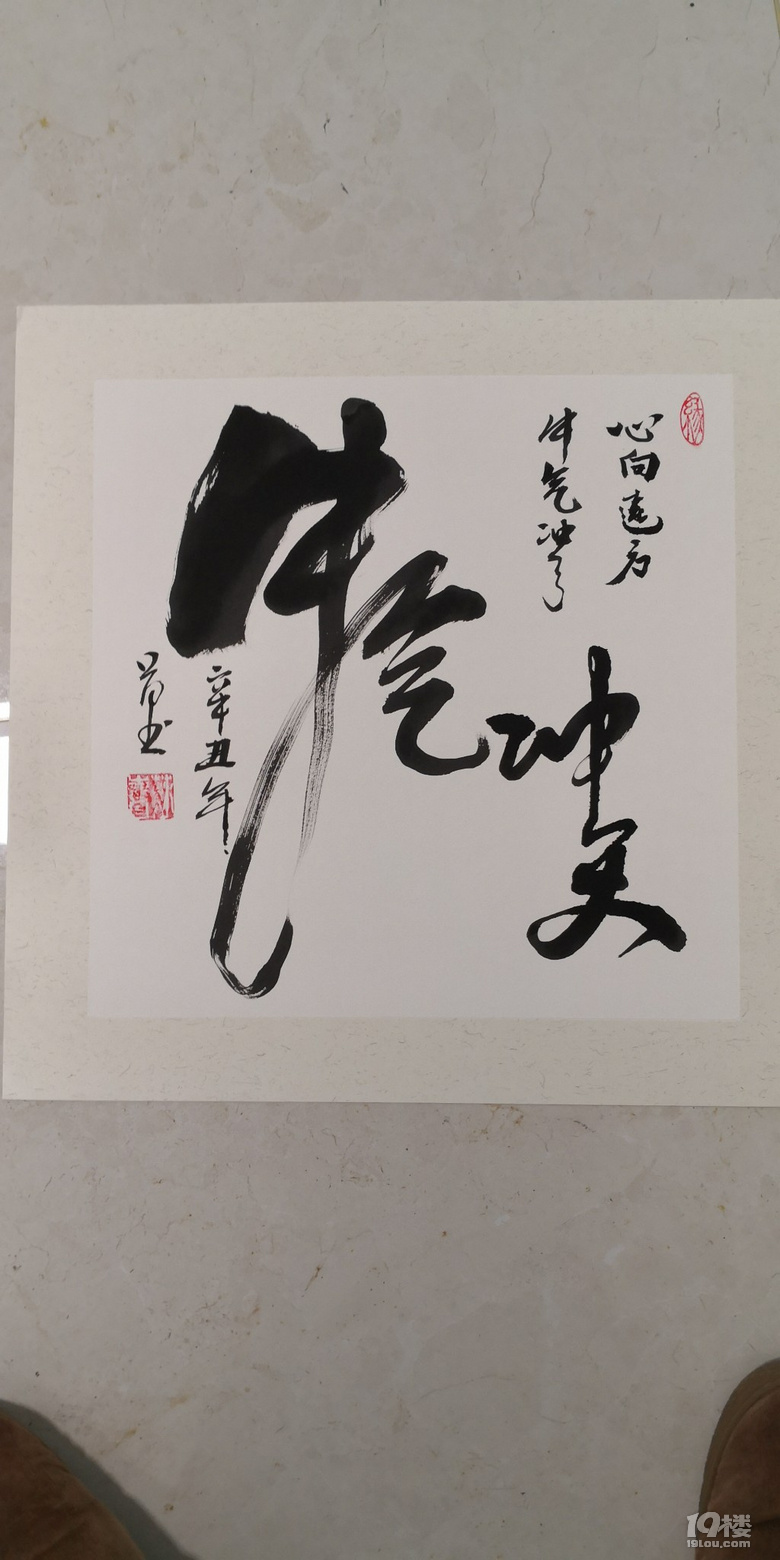 缘
心向遠方
牛气冲天
牛气冲天
辛丑年
书
19楼
19lou.com